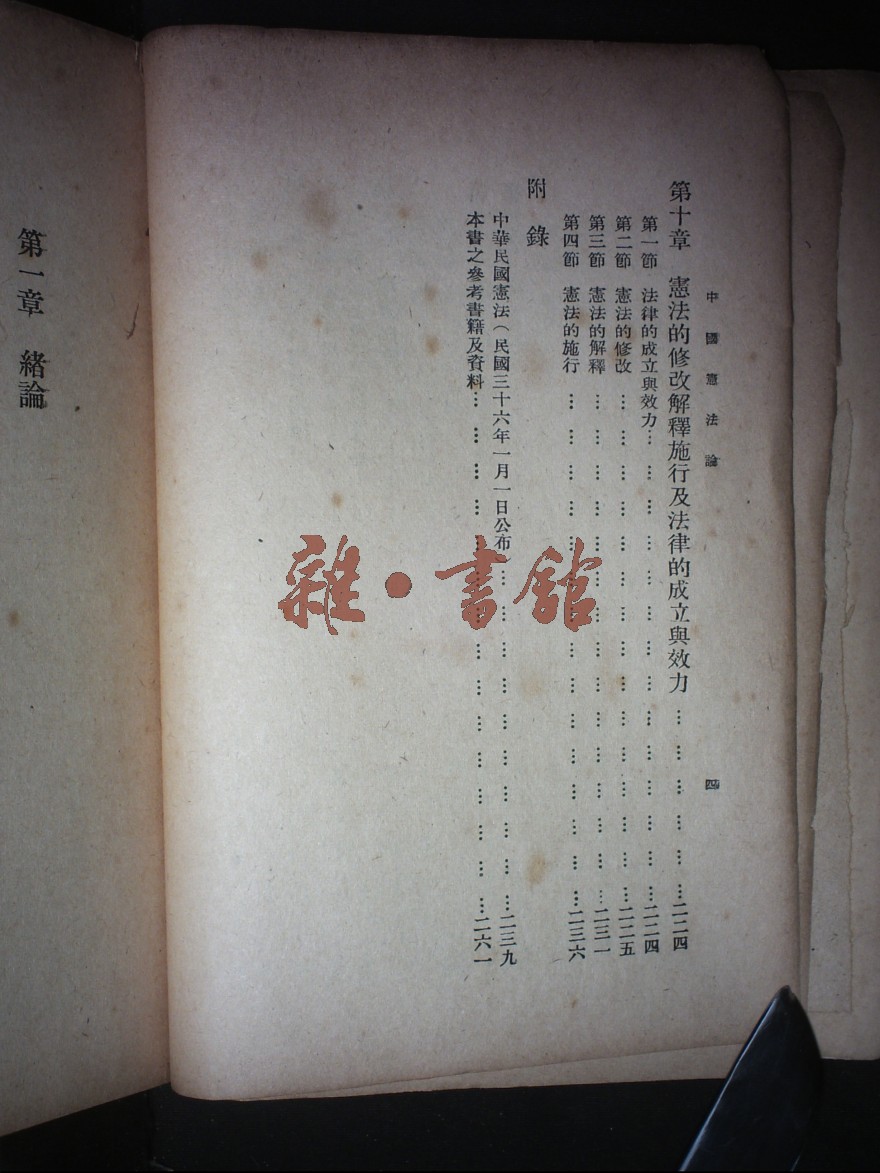 中國憲法論
四
第十章 憲法的修改解釋施行及法律的成立與效力………………二二四
第一節 法律的成立與效力………………二二四
第二節 憲法的修改………………二二五
第三節 憲法的解釋………………二三一
第四節 憲法的施行………………二三六
附錄
中華民國憲法(民國三十六年一月一日公布………………二三九
本書之參考書籍及資料………………二六一
第一章 緒論
雜·書館